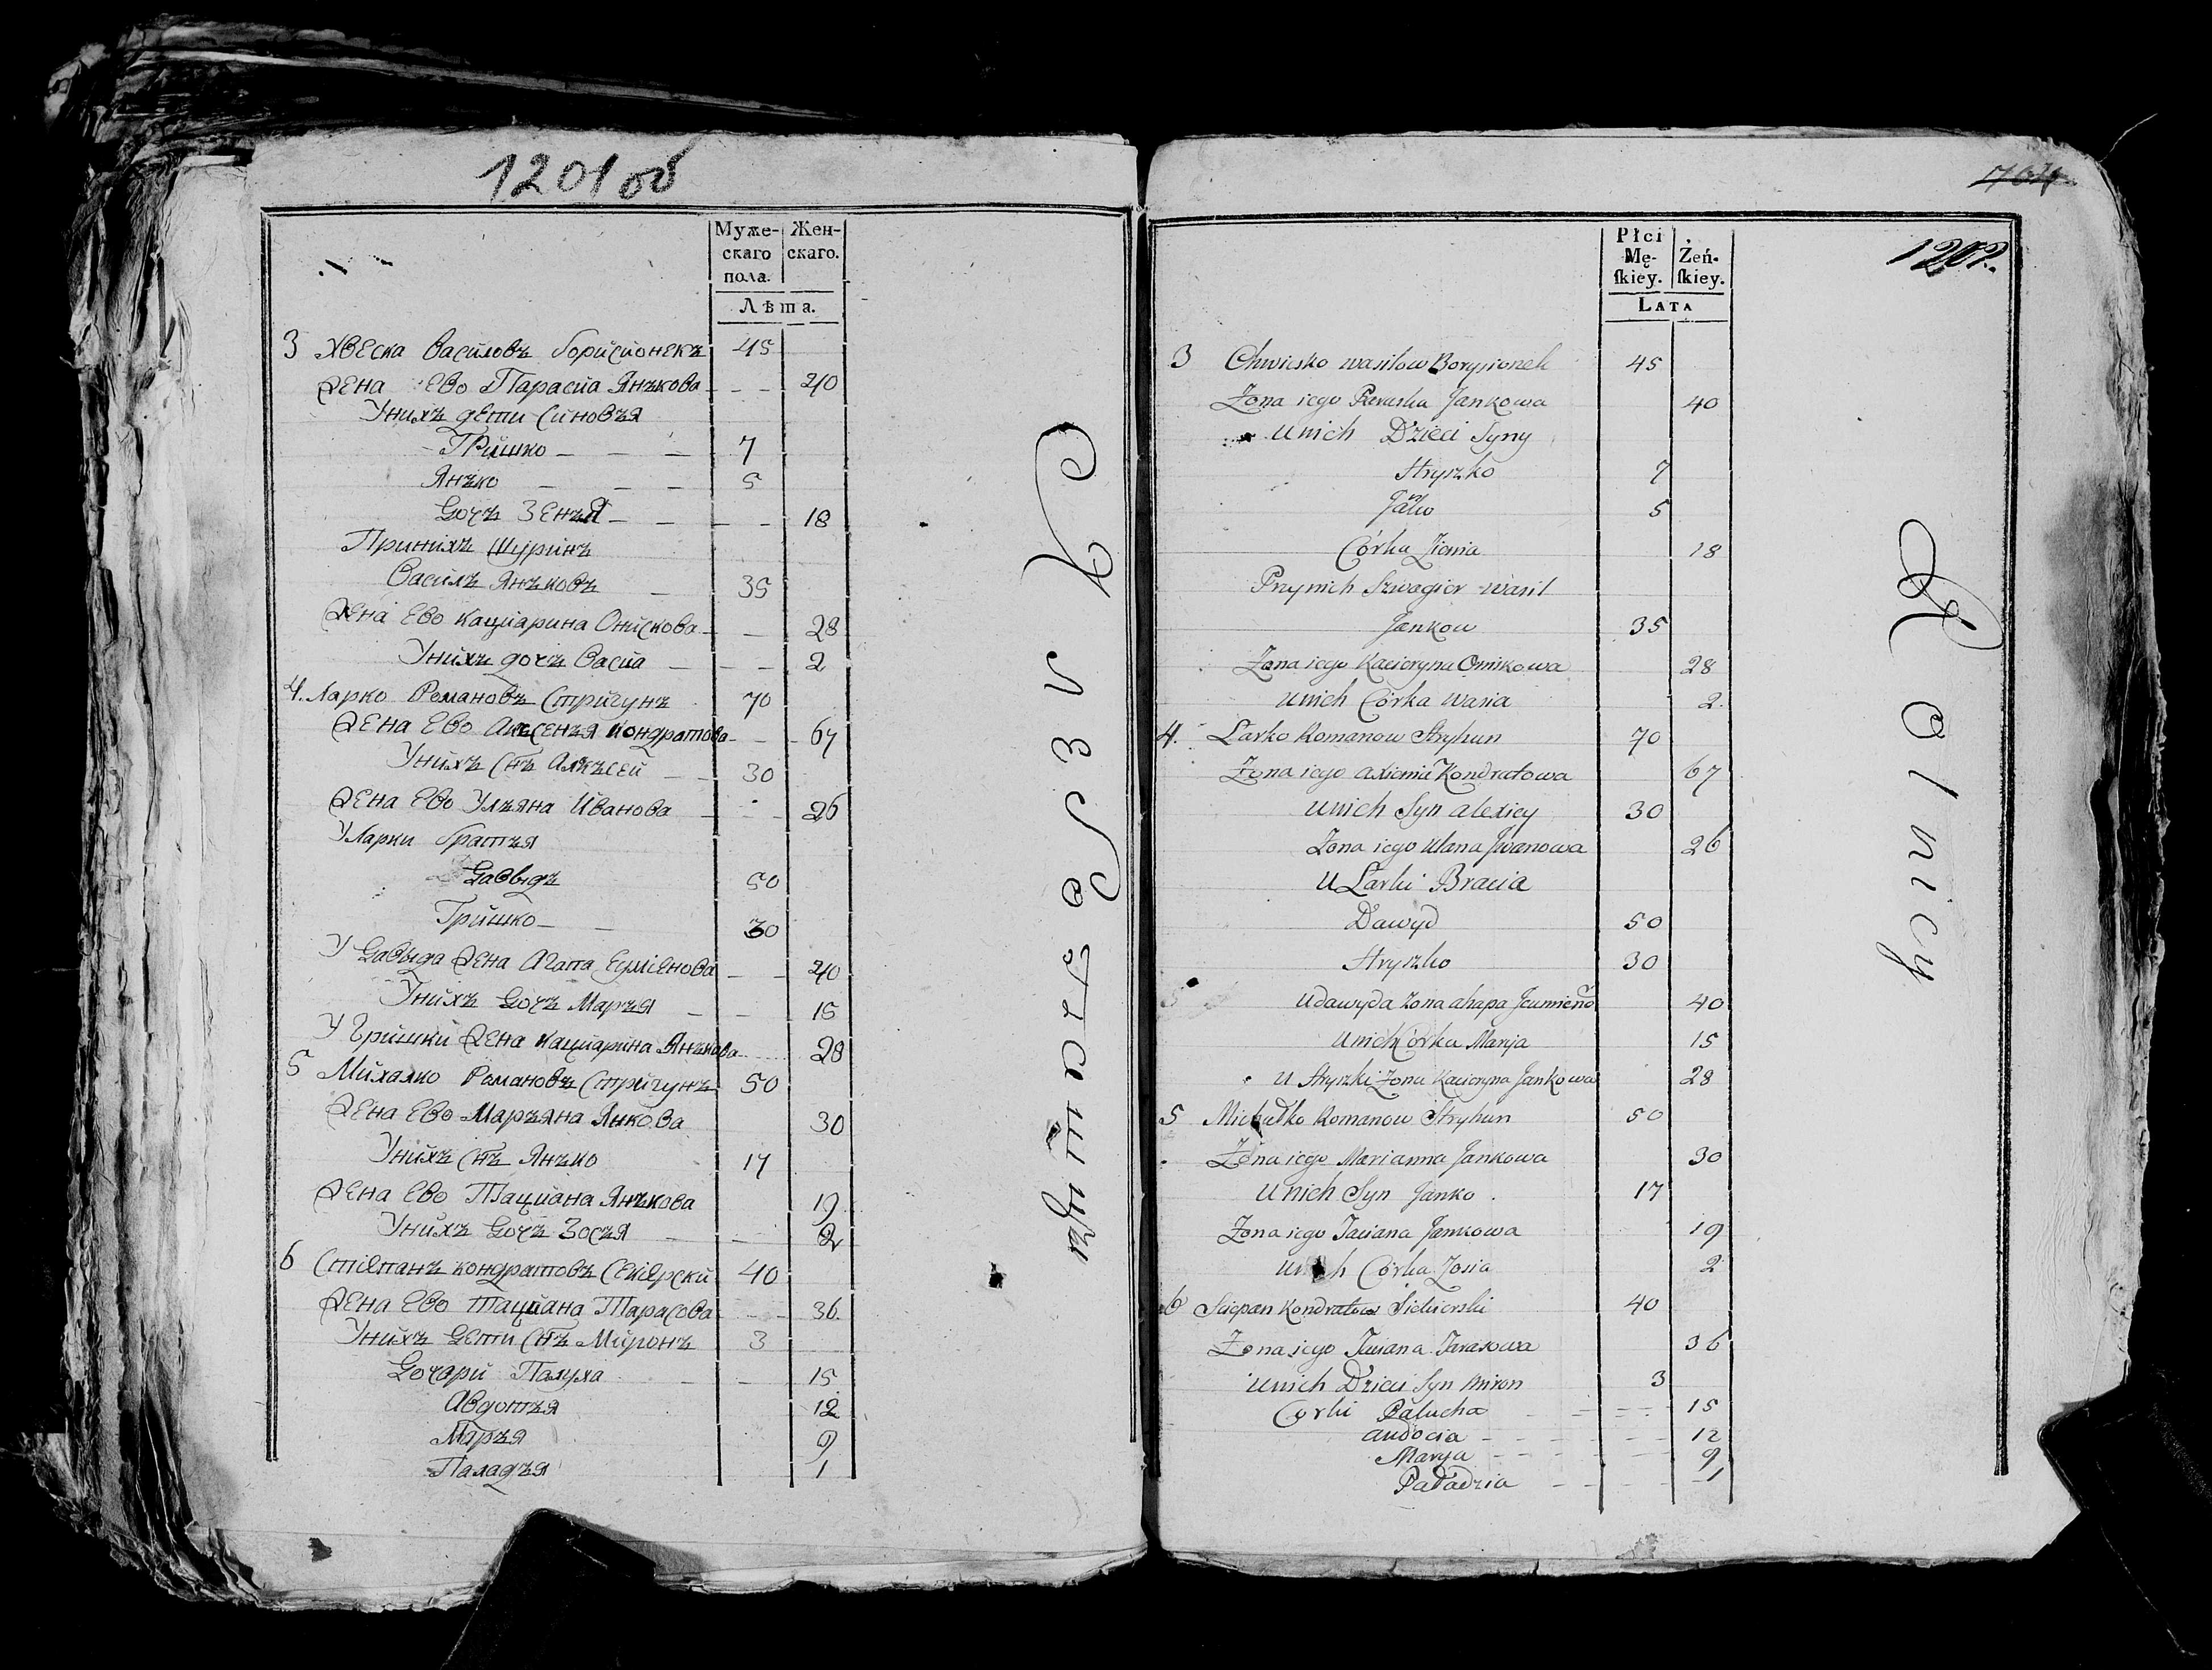 1201 об
Муже-
скаго
пола.
Жен-
скаго.
Лѣта.
3 Хвеска Василовъ Борисионекъ 45
Жена Ево Парасиа Янъкова 40
Унихъ дети Синовъя
Гришко 7
Янъко 5
Дочъ Зенъя 18
Принихъ Шуринъ
Василъ Янъковъ 35
Жена Ево Кациарина Онискова 28
Унихъ дочъ Васиа 2
4. Ларко Романовъ Стригунъ 70
Жена Ево Аксенъя Кондратова 67
Унихъ Снъ Алексей 30
Жена Ево Улъяна Иванова 26
У Ларки братъя
Давыдъ 50
Гришко 30
У Давыда Жена Агапа 40
Унихъ Дочъ Маръя 15
У Гришки Жена Кациарина Янъкова 28
5 Михалко Романовъ Стригунъ 50
Жена Ево Маръяна Янкова 30
Унихъ Снъ Янъко 17
Жена Ево Тациана Янъкова 19
Унихъ Дочъ Зосъя 2
6 Стиепанъ Кондратовъ 40
Жена Ево Тациана Тарасова 36
Унихъ Дети Снъ Миронъ 3
Дочари Палуха 15
Авдотъя 12
Маръя 9
Паладъя 1
1202.
Płci
Mę-
skiey.
Żeń-
skiey.
Lata
3 Chwiesko wasilow Borysionek 45
Żona iego Paraska Jankowa 40
unich Dzieci Syny
Hryszko 7
Jańko 5
Córka Zienia 18
Przynich Szwagier wasil
Jankow 35
Żona iego Kacieryna Oniskowa 28
unich Córka wasia 2
4. Larko Romanow Stryhun 70
Żona iego axienia Kondratowa 67
unich Syn alexiey 30
Żona iego ulana Jwanowa 26
u Larki Bracia
Dawyd 50
Hryszko 30
udawyda żona ahapa 40
unich Córka Marija 15
u Hryszki Żona Kacieryna Jankowa 28
5 Michałko Romanow Stryhun 50
Żona iego Marianna Jankowa 30
unich Syn Janko 17
Żona iego Taciana Jankowa 19
unich Córka Zosia 2
6 Sciepan Kondratow Siekierski 40
Żona iego Taciana Tarasowa 36
unich Dzieci Syn Miron 3
Corki Palucha 15
audocia 12
Maryja 9
Paładzia 1
Rolnicy